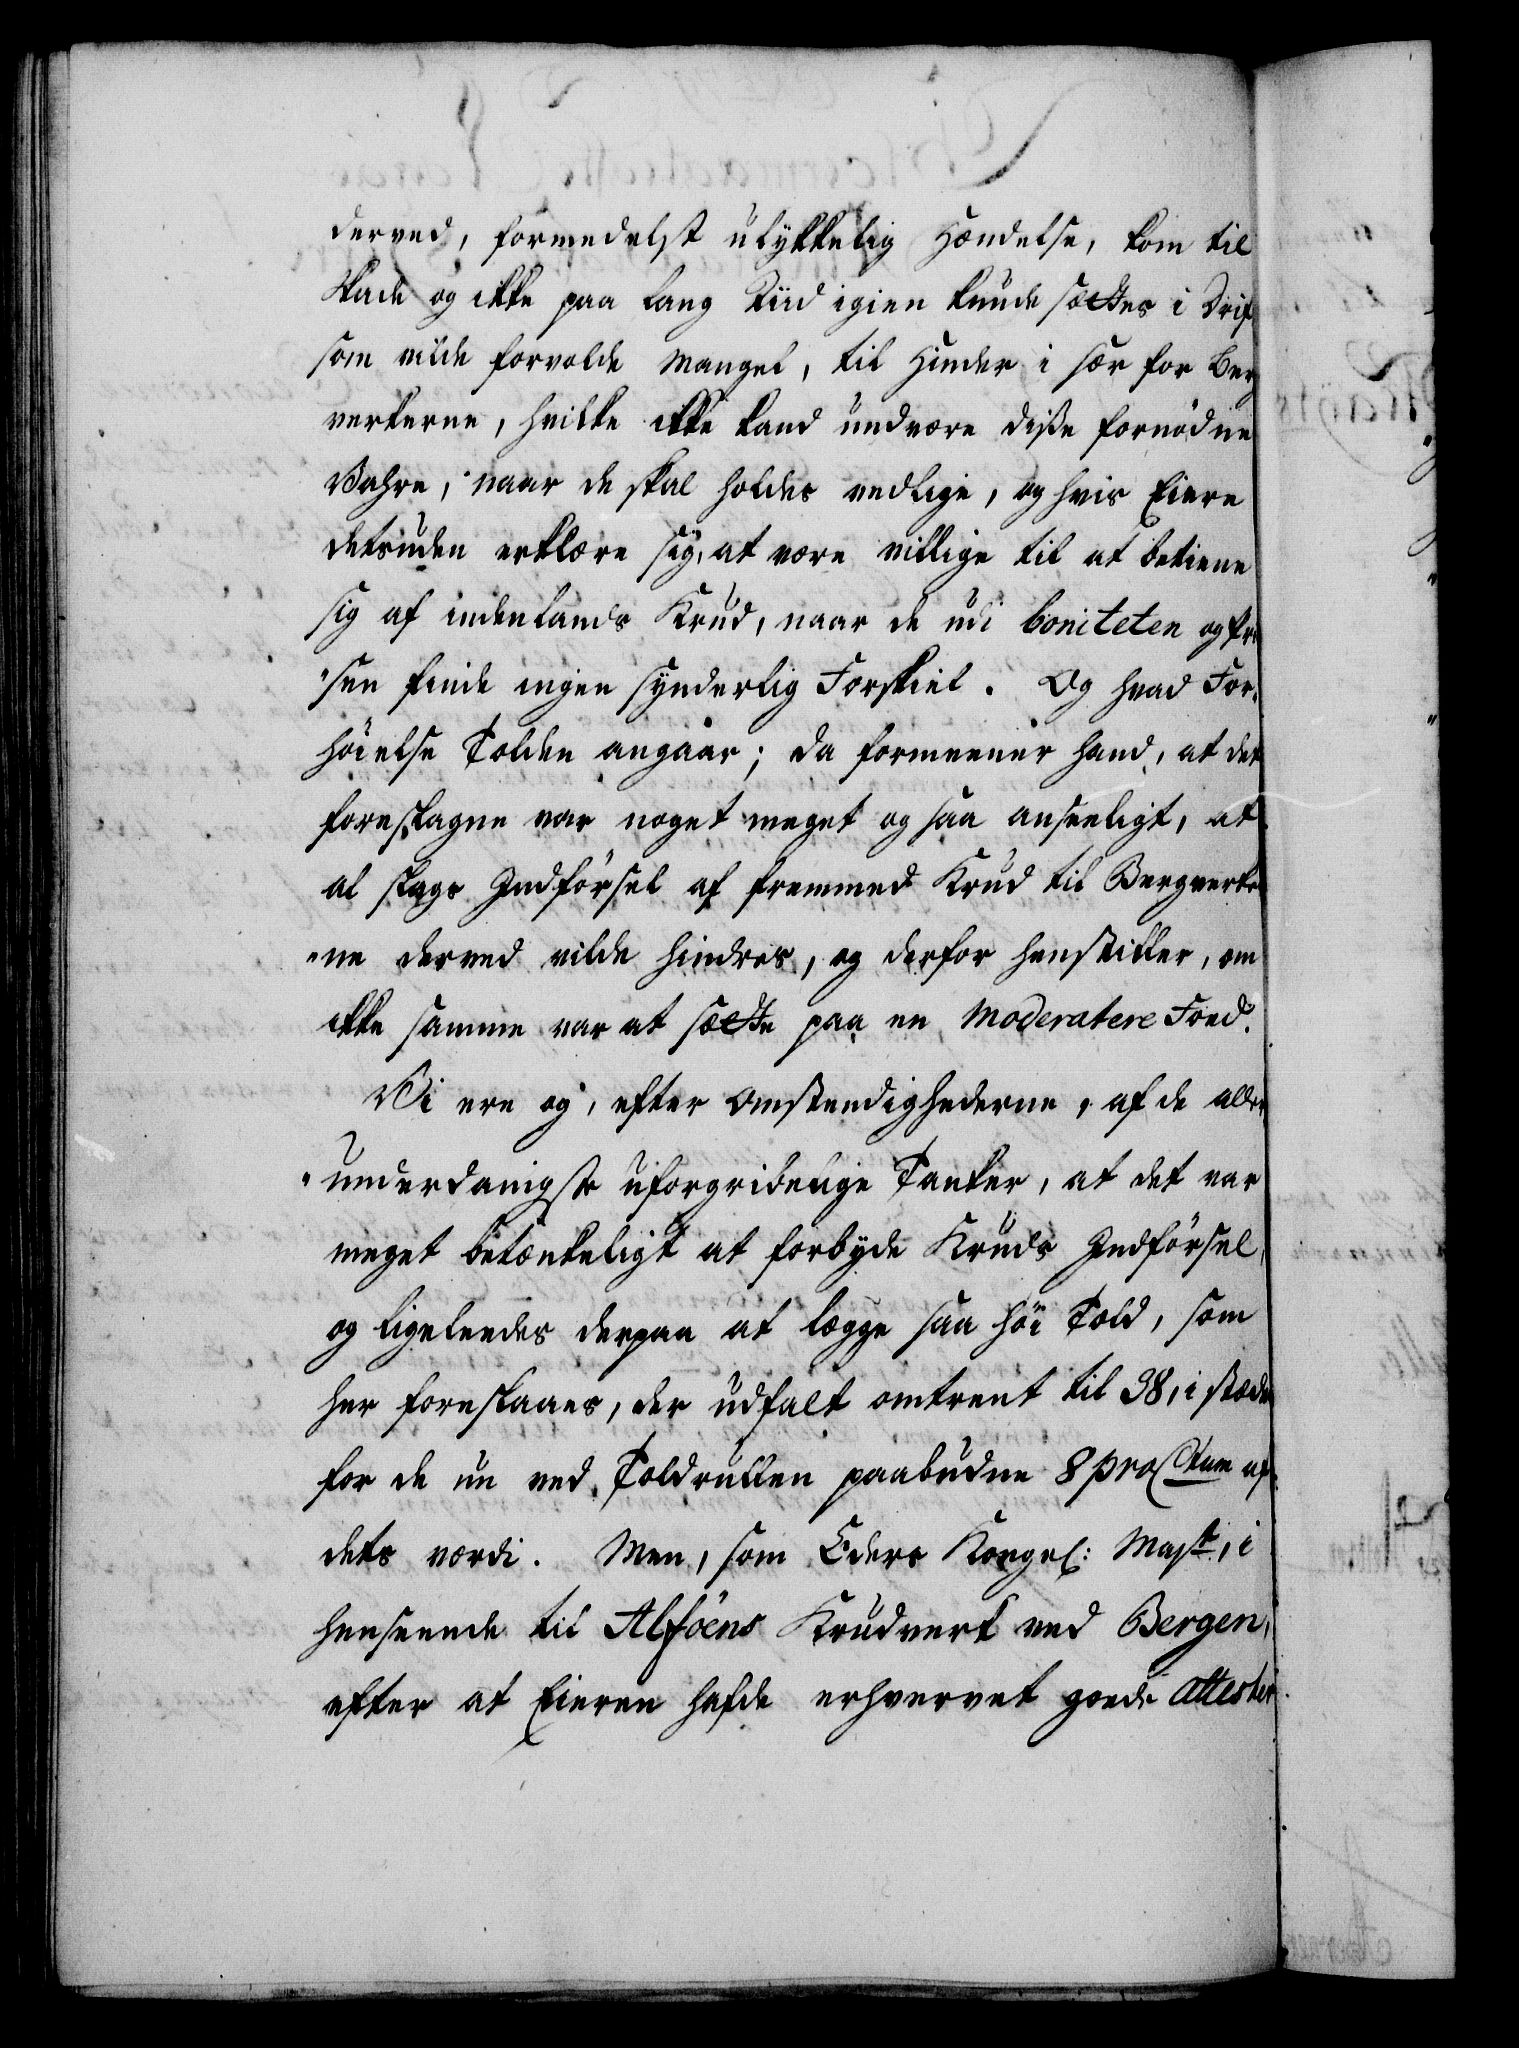 derved, formedelst ulykkelig Hændelse, kom til
Skade og ikke paa lang Tiid igien kunde sættes i Drif
som vilde forvolde Mangel, til Hinder i sær for Ber
verkerne, hvilke ikke kand undvære disse fornødne
Vahre, naar de skal holdes vedlige, og hvis Eiere
detsuden erklære sig, at være villige til at betiene
sig af indenlands Krud, naar de udi boniteten og Pri
"sen finde ingen synderlig Forskiel. Og hvad For-
höielse Tolden angaar; da formeener hand, at det
foreslagne var noget meget og saa anseeligt, at
al slags Indförsel af fremmed Krud til Bergverker
"ne derved vilde hindres, og derfor henstiller, om
ikke samme var at sætte paa en Moderatere Foed.
Vi ere og, efter Omstendighederne, af de aller
"underdanigste uforgribelige Tanker, at det var
meget betænkeligt at forbyde Kruds Indförsel,
og ligeleedes derpaa at lægge saa höi Told, som
her foreslaaes, der udfalt omtrent til 38, i stæde
for de nu ved Toldrullen paabudne 8 pro Ctum af
dets værdi. Men, som Eders Kongel: Majst, i
henseende til Alföens Krudverk ved Bergen,
efter at Eieren hafde erhvervet goede attester